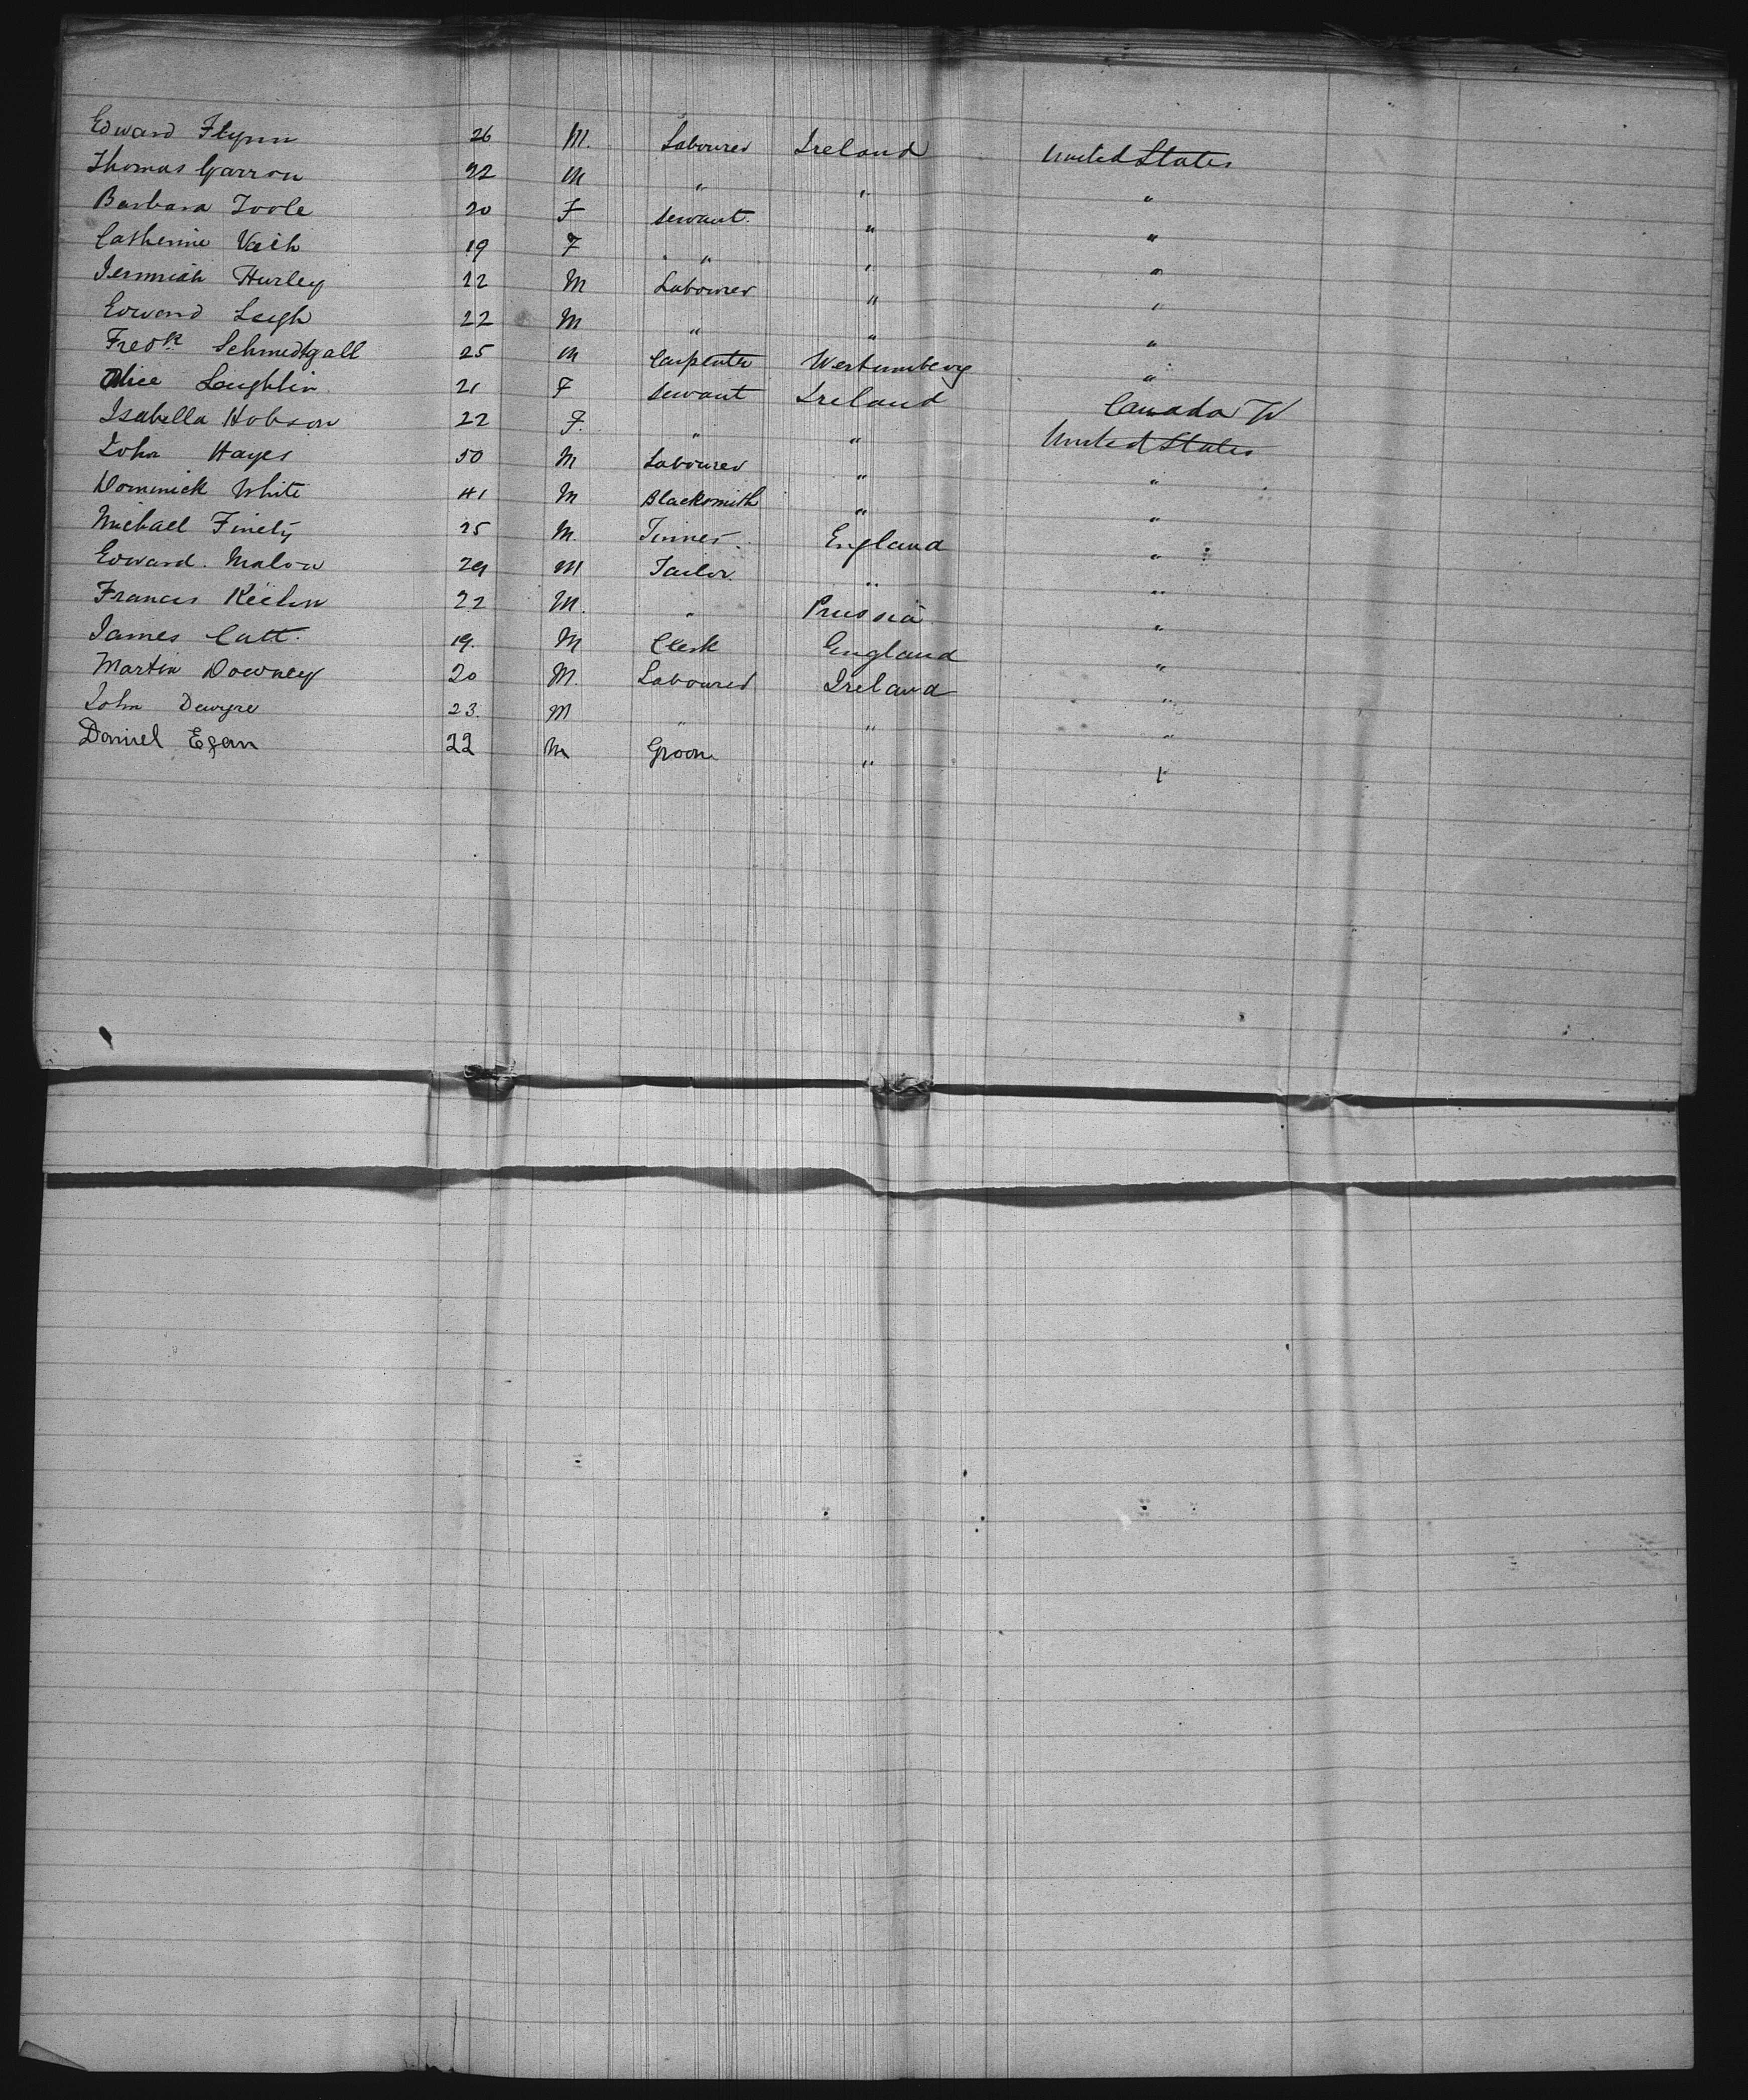 Edward Flynn 26 M. Labourer Ireland United States
Thomas Garron 22 M " " "
Barbara Toole 20 F Servant. " "
Catherine 19 F " " "
Jermiah Hurley 22 M Labourer " "
Edward Leigh 22 M " " "
Fredk Schmedtgall 25 M Carpenter Wertumberg "
Alice Loughlin 21 F Servant Ireland Canada W
Isabella Hobson 22 F. " " United States
John Hayes 50 M Labourer " "
Dominick White 41 M Blacksmith " "
Michael Finety 25 M. Tinner England "
Edward. Malon 29 M Tailor " "
Francis 22 M. " Prussia "
James Catt. 19. M Clerk England "
Martin Downey 20 M. Labourer Ireland "
John Dewyre 23. M " " "
Daniel Egan 22 M Groom " "